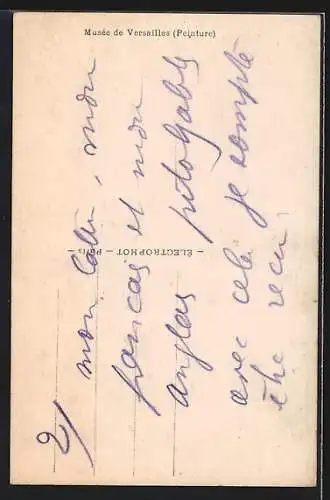 Musée de Versailles (Peinture)
ÉLECTROPHOT — PARIS
2/ mon latin, mon
français et mon
anglais potogable
avec cela je compte
être recu